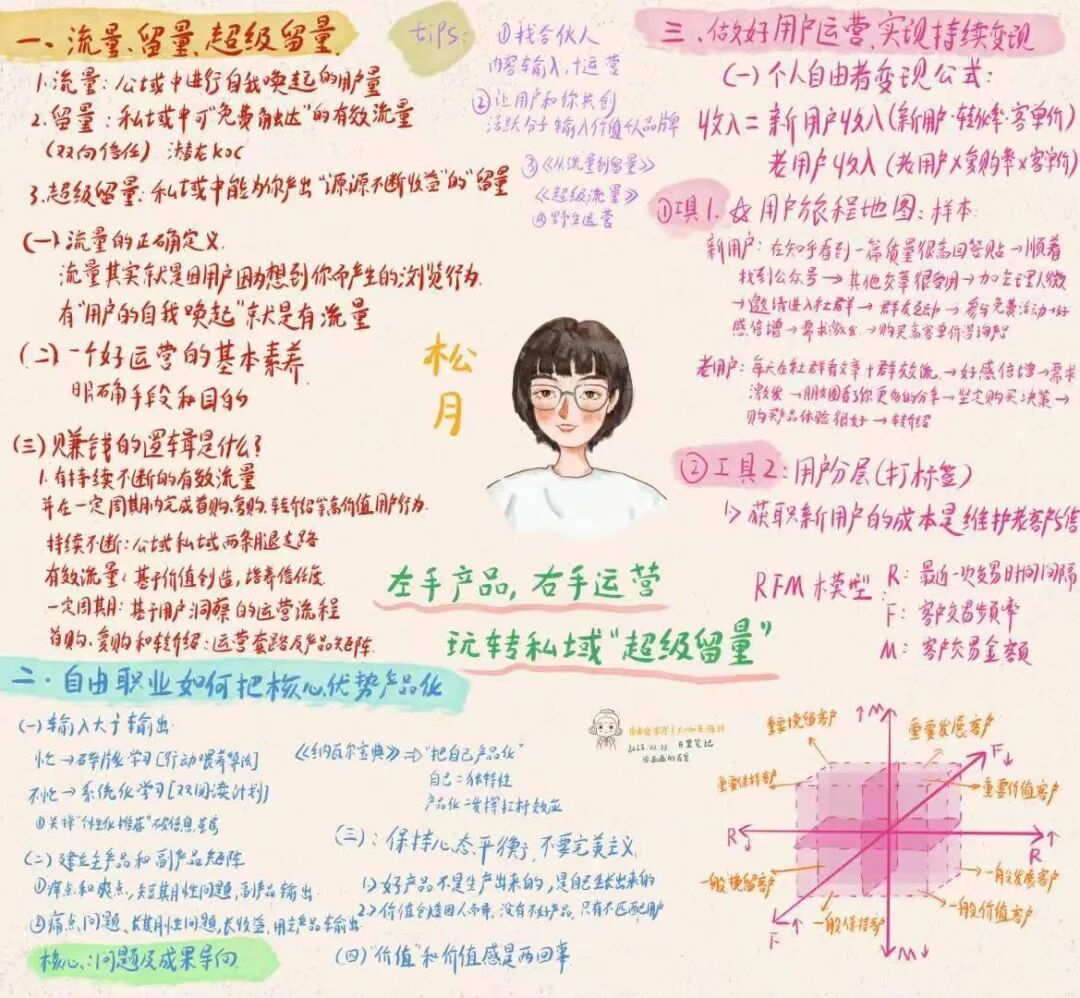 一、流量、留量、超级留量
1.流量：公域中进行自我唤起的用户量
2.留量：私域中可“免费触达”的有效流量
(双向信任) 潜在koc
3.超级留量：私域中能为你产出“源源不断收益”的“留量
(一)流量的正确定义
流量其实就是因用户因为想到你而产生的浏览行为
有“用户的自我唤起”就是有流量
(二)一个好运营的基本素养
明确手段和目的
(三)赚钱的逻辑是什么？
1.有持续不断的有效流量
并在一定周期内完成首购、复购、转介绍等高价值用户行为.
持续不断：公域私域两条腿走路
有效流量：基于价值创造，培养信任度
一定周期：基于用户洞察的运营流程
首购、复购和转介绍：运营套路及产品矩阵
tips:
①找合伙人
内容输入，+运营
②让用户和你共创
活跃分子输入价值
③《从流量到留量》
《超级流量》
④野生运营
松月
左手产品，右手运营
玩转私域“超级留量”
二·自由职业如何把核心优势产品化
(一)输入大于输出
忙→碎片化学习[行动喂养算法]
不忙→系统化学习[双周读计划]
①关掉“个性化推荐”破信息茧房
(二)建立主产品和副产品矩阵
①痒点和爽点，短期性问题，副产品输出.
②痛点、问题、长期性问题，长收益，用主产品输出
核心：问题及成果导向
《纳瓦尔宝典》⇒“把自己产品化”
自己=独特性
产品化=发挥杠杆效应
(三)：保持心态平衡，不要完美主义
1>好产品不是生产出来的，是自己生长出来的
2>价值创造因人而异，没有不好产品，只有不匹配用户
(四)“价值”和价值感是两回事
三、做好用户运营，实现持续变现
(一)个人自由者变现公式：
收入=新用户收入(新用户·转化率·客单价)
老用户收入(老用户×复购率×客单价)
①工具1.做用户旅程地图：样本
新用户：在知乎看到一篇质量很高回答贴→顺着
找到公众号→其他文章很受用→加主理人微
→邀请进入社群→群友互动→参与免费活动+好
感倍增→需求激发→购买高客单价咨询产品
老用户：每天在社群看文章+群友交流→好感倍增→需求
激发→朋友圈看了你更多的分享→坚定购买决策→
购买产品体验很好→转介绍
②工具2：用户分层(打标签)
1>获取新用户的成本是维护老客户5倍
RFM模型
R：最近一次交易时间间隔
F：客户交易频率
M：客户交易金额
重要挽留客户
↑M↑
重要发展客户
F↓
重要保持客户
重要价值客户
R↓
R↑
一般挽留客户
一般发展客户
一般保持客户
一般价值客户
F↑
M↓